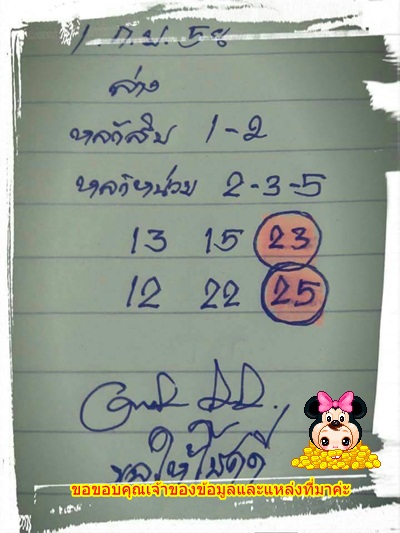 1 ก.ย. 58
ล่าง
หลักสิบ 1-2
หลักหน่วย 2-3-5
13 15 23
12 22 25
ขอให้โชคดี
ขอขอบคุณเจ้าของข้อมูลและแหล่งที่มาค่ะ